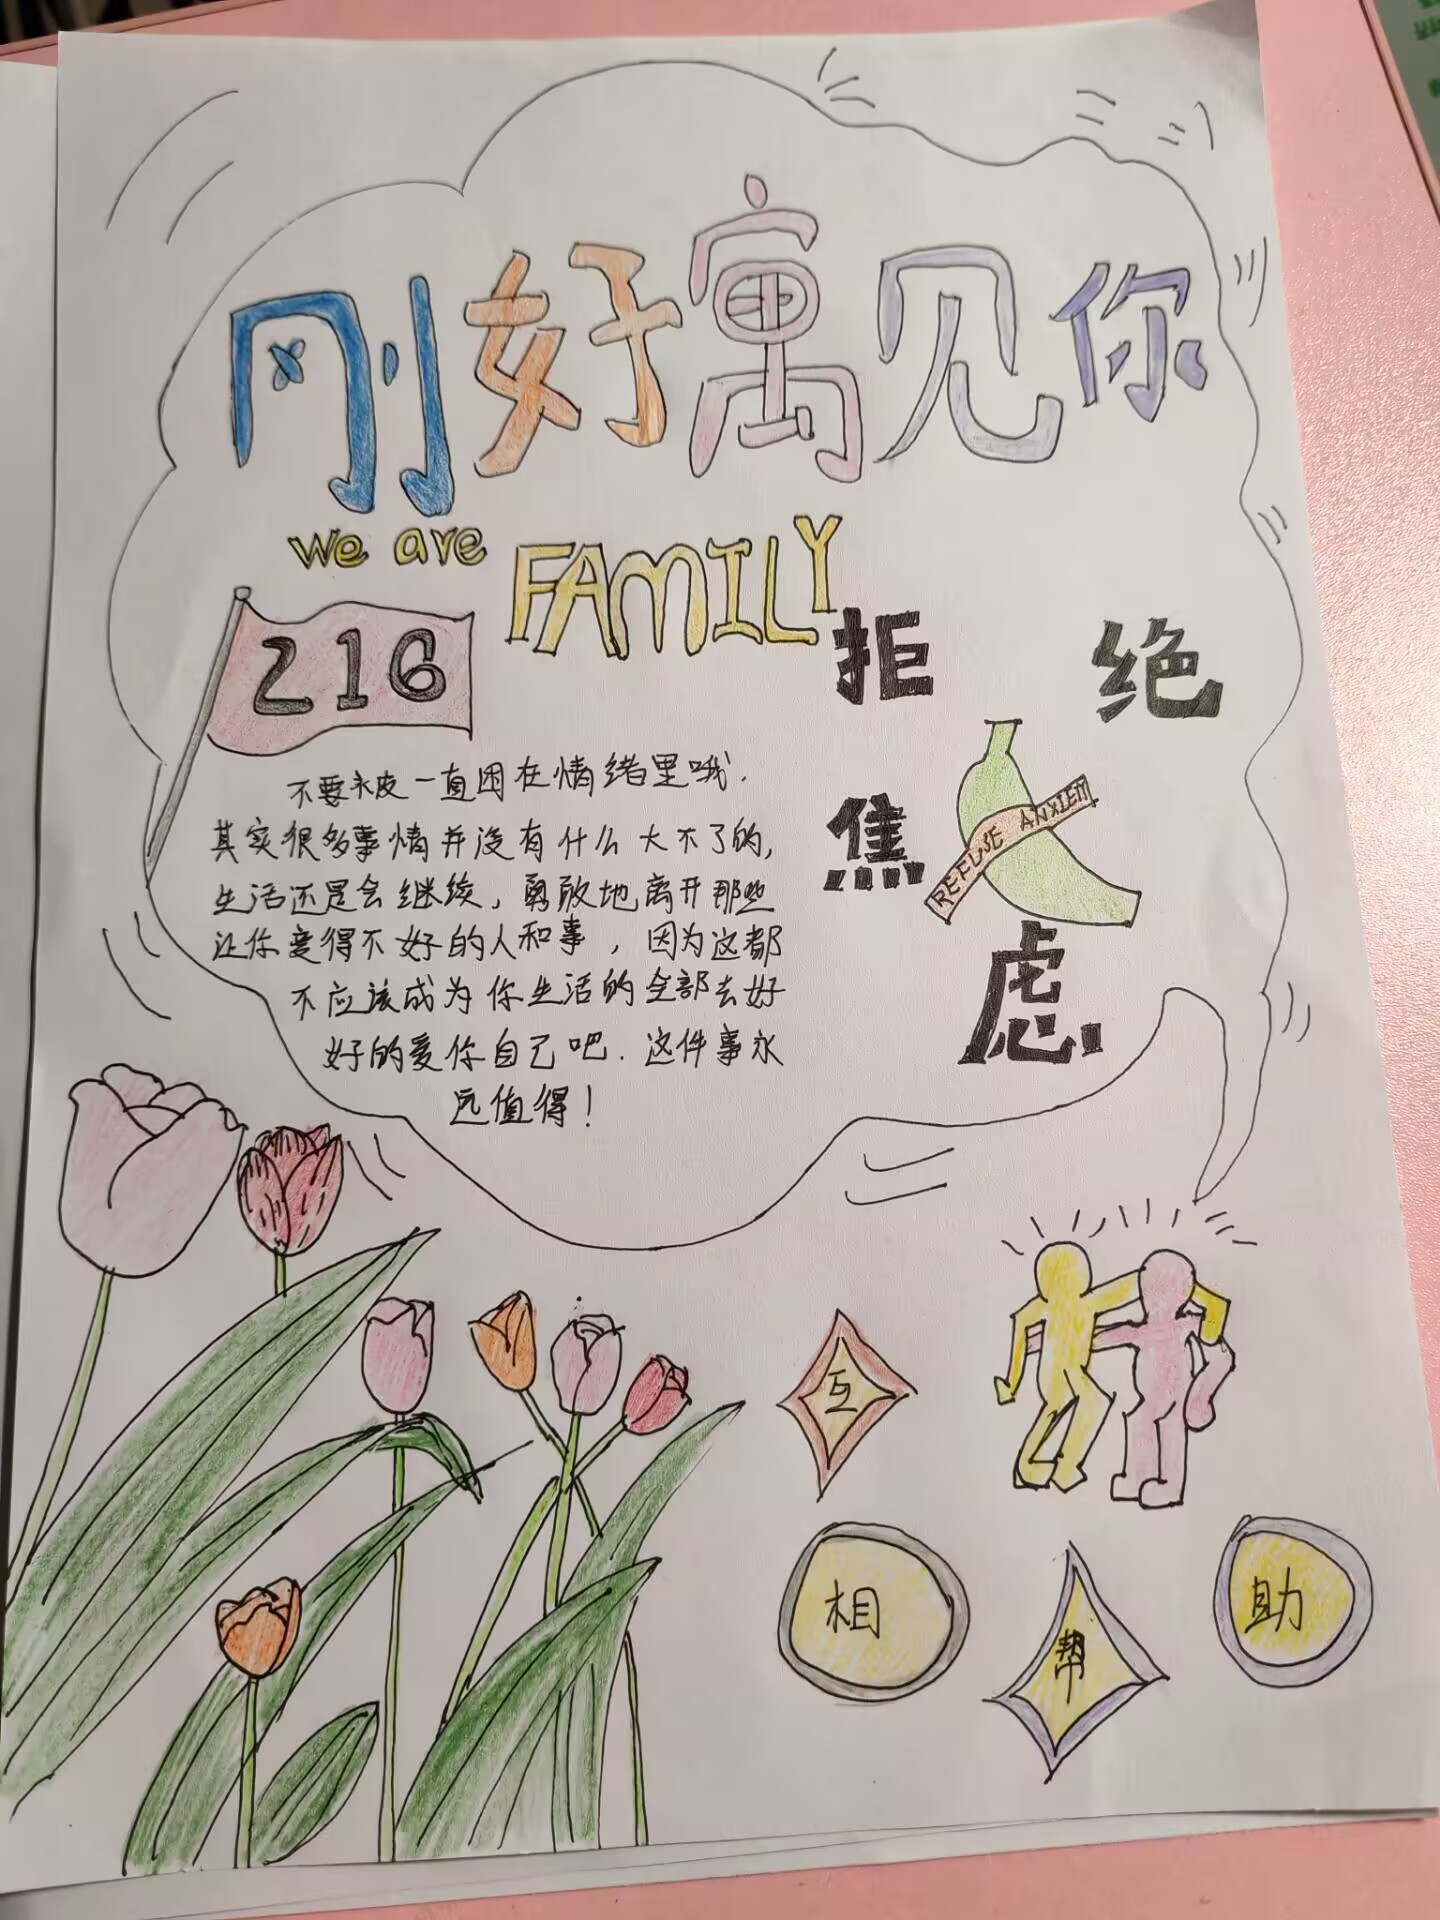 刚好寓见你
We are FAMILY
216
拒绝
焦
REFUSE ANXIEM
虑.
不要永皮一直困在情绪里哦.
其实很多事情并没有什么大不了的,
生活还是会继续,勇敢地离开那些
让你变得不好的人和事,因为这都
不应该成为你生活的全部去好
好的爱你自己吧.这件事永
远值得!
互
相
帮
助